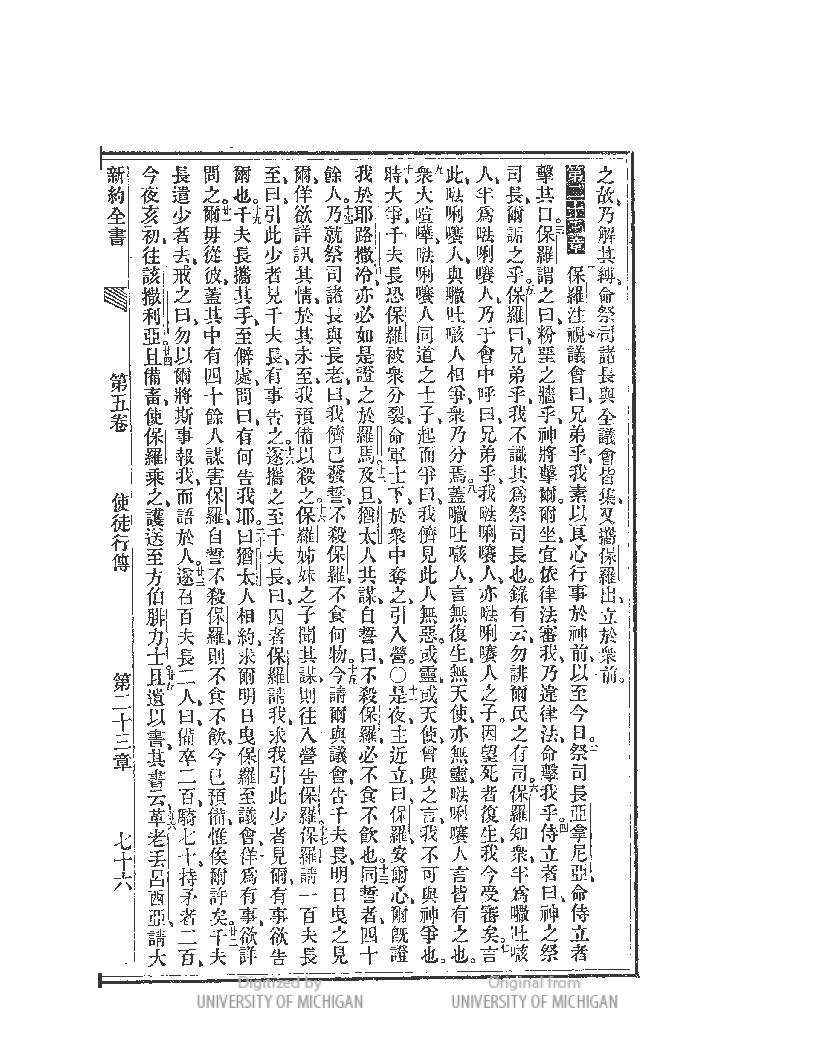 之故、乃解其縛、命祭司諸長與全議會皆集、又攜保羅出、立於衆前。
第二十三章 一保羅注視議會曰、兄弟乎、我素以良心行事於神前、以至今日。二祭司長亞拿尼亞、命侍立者
擊其口。三保羅謂之曰、粉堊之牆乎、神將擊爾、爾坐宜依律法審我、乃違律法命擊我乎。四侍立者曰、神之祭
司長、爾詬之乎。五保羅曰、兄弟乎、我不識其爲祭司長也、錄有云、勿誹爾民之有司。六保羅知衆、半爲𠼻吐咳
人、半爲𠵽唎嚷人、乃于會中呼曰、兄弟乎、我𠵽唎嚷人、亦𠵽唎嚷人之子、因望死者復生、我今受審矣。七言
此、𠵽唎嚷人與𠼻吐咳人相爭、衆乃分焉。八蓋𠼻吐咳人、言無復生、無天使、亦無靈、𠵽唎嚷人言皆有之也。
九衆大喧嘩、𠵽唎嚷人同道之士子、起而爭曰、我儕見此人無惡、或靈、或天使、曾與之言、我不可與神爭也。
十時大爭、千夫長恐保羅被衆分裂、命軍士下、於衆中奪之、引入營。〇十一是夜、主近立曰、保羅、安爾心、爾旣證
我於耶路撒冷、亦必如是證之於羅馬。十二及旦、猶太人共謀、自誓曰、不殺保羅、必不食不飲也。十三同誓者、四十
餘人。十四乃就祭司諸長與長老曰、我儕已發誓、不殺保羅、不食何物。十五今請爾與議會告千夫長、明日曳之見
爾、佯欲詳訊其情、於其未至、我預備以殺之。十六保羅姊妹之子聞其謀、則往入營告保羅。十七保羅請一百夫長
至、曰、引此少者見千夫長、有事告之。十八遂攜之至千夫長、曰、囚者保羅請我、求我引此少者見爾、有事欲告
爾也。十九千夫長攜其手、至僻處、問曰、有何告我耶。二十曰、猶太人相約、求爾明日曳保羅至議會、佯爲有事、欲詳
問之。廿一爾毋從彼、蓋其中有四十餘人謀害保羅、自誓不殺保羅、則不食不飲、今已預備、惟俟爾許矣。廿二千夫
長遣少者去、戒之曰、勿以爾將斯事報我、而語於人。廿三遂召百夫長二人曰、備卒二百、騎七十、持矛者二百、
今夜亥初、往該撒利亞。廿四且備畜、使保羅乘之、護送至方伯腓力士。廿五且遺以書、其書云、廿六革老丟呂西亞、請大
新約全書 第五卷 使徒行傳 第二十三章 七十六
Digitized by UNIVERSITY OF MICHIGAN
Original from UNIVERSITY OF MICHIGAN